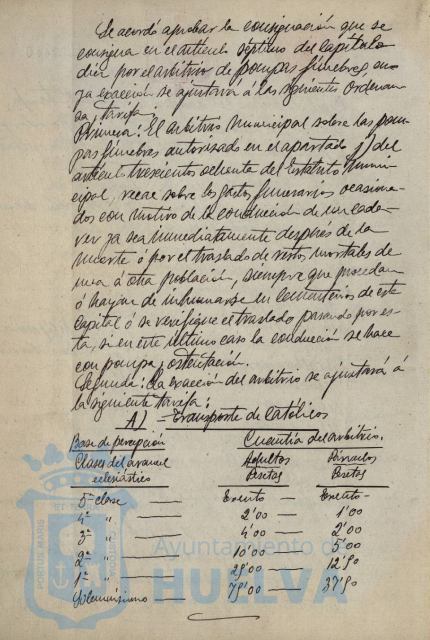 Se acordó aprobar la consignación que se
consigna en el artículo séptimo del capítulo
diez por el arbitrio de pompas fúnebres cu
ya exacción se ajustará á las siguientes Ordenan
za y tarifa:
Primera: El arbitrio municipal sobre las pom
pas fúnebres autorizado en el apartado j) del
artículo trescientos ochenta del Estatuto Muni
cipal, recae sobre los gastos funerarios ocasiona-
dos con motivo de la conducción de un cadá-
ver ya sea inmediatamente después de la
muerte ó por el traslado de restos mortales de
una á otra población, siempre que procedan
ó hayan de inhumarse en Cementerios de esta
Capital ó se verifique el traslado pasando por es-
ta, si en este último caso la conducción se hace
con pompa y ostentación.
Segunda: La exacción del arbitrio se ajustará á
la siguiente tarifa:
A) = Transporte de Católicos
Base de percepción Cuantía del arbitrio.
Clases del arancel Adultos Párvulos
eclesiástico Pesetas Pesetas
5ª clase — Exento — Exento —
4ª " — 2'00 — 1'00
3ª " — 4'00 — 2'00
2ª " — 10'00 — 5'00
1ª " — 25'00 — 12'50
Solemnísimo — 75'00 — 37'50
Ayuntamiento de
HUELVA
PORTUS MARIS
CUSTODIA